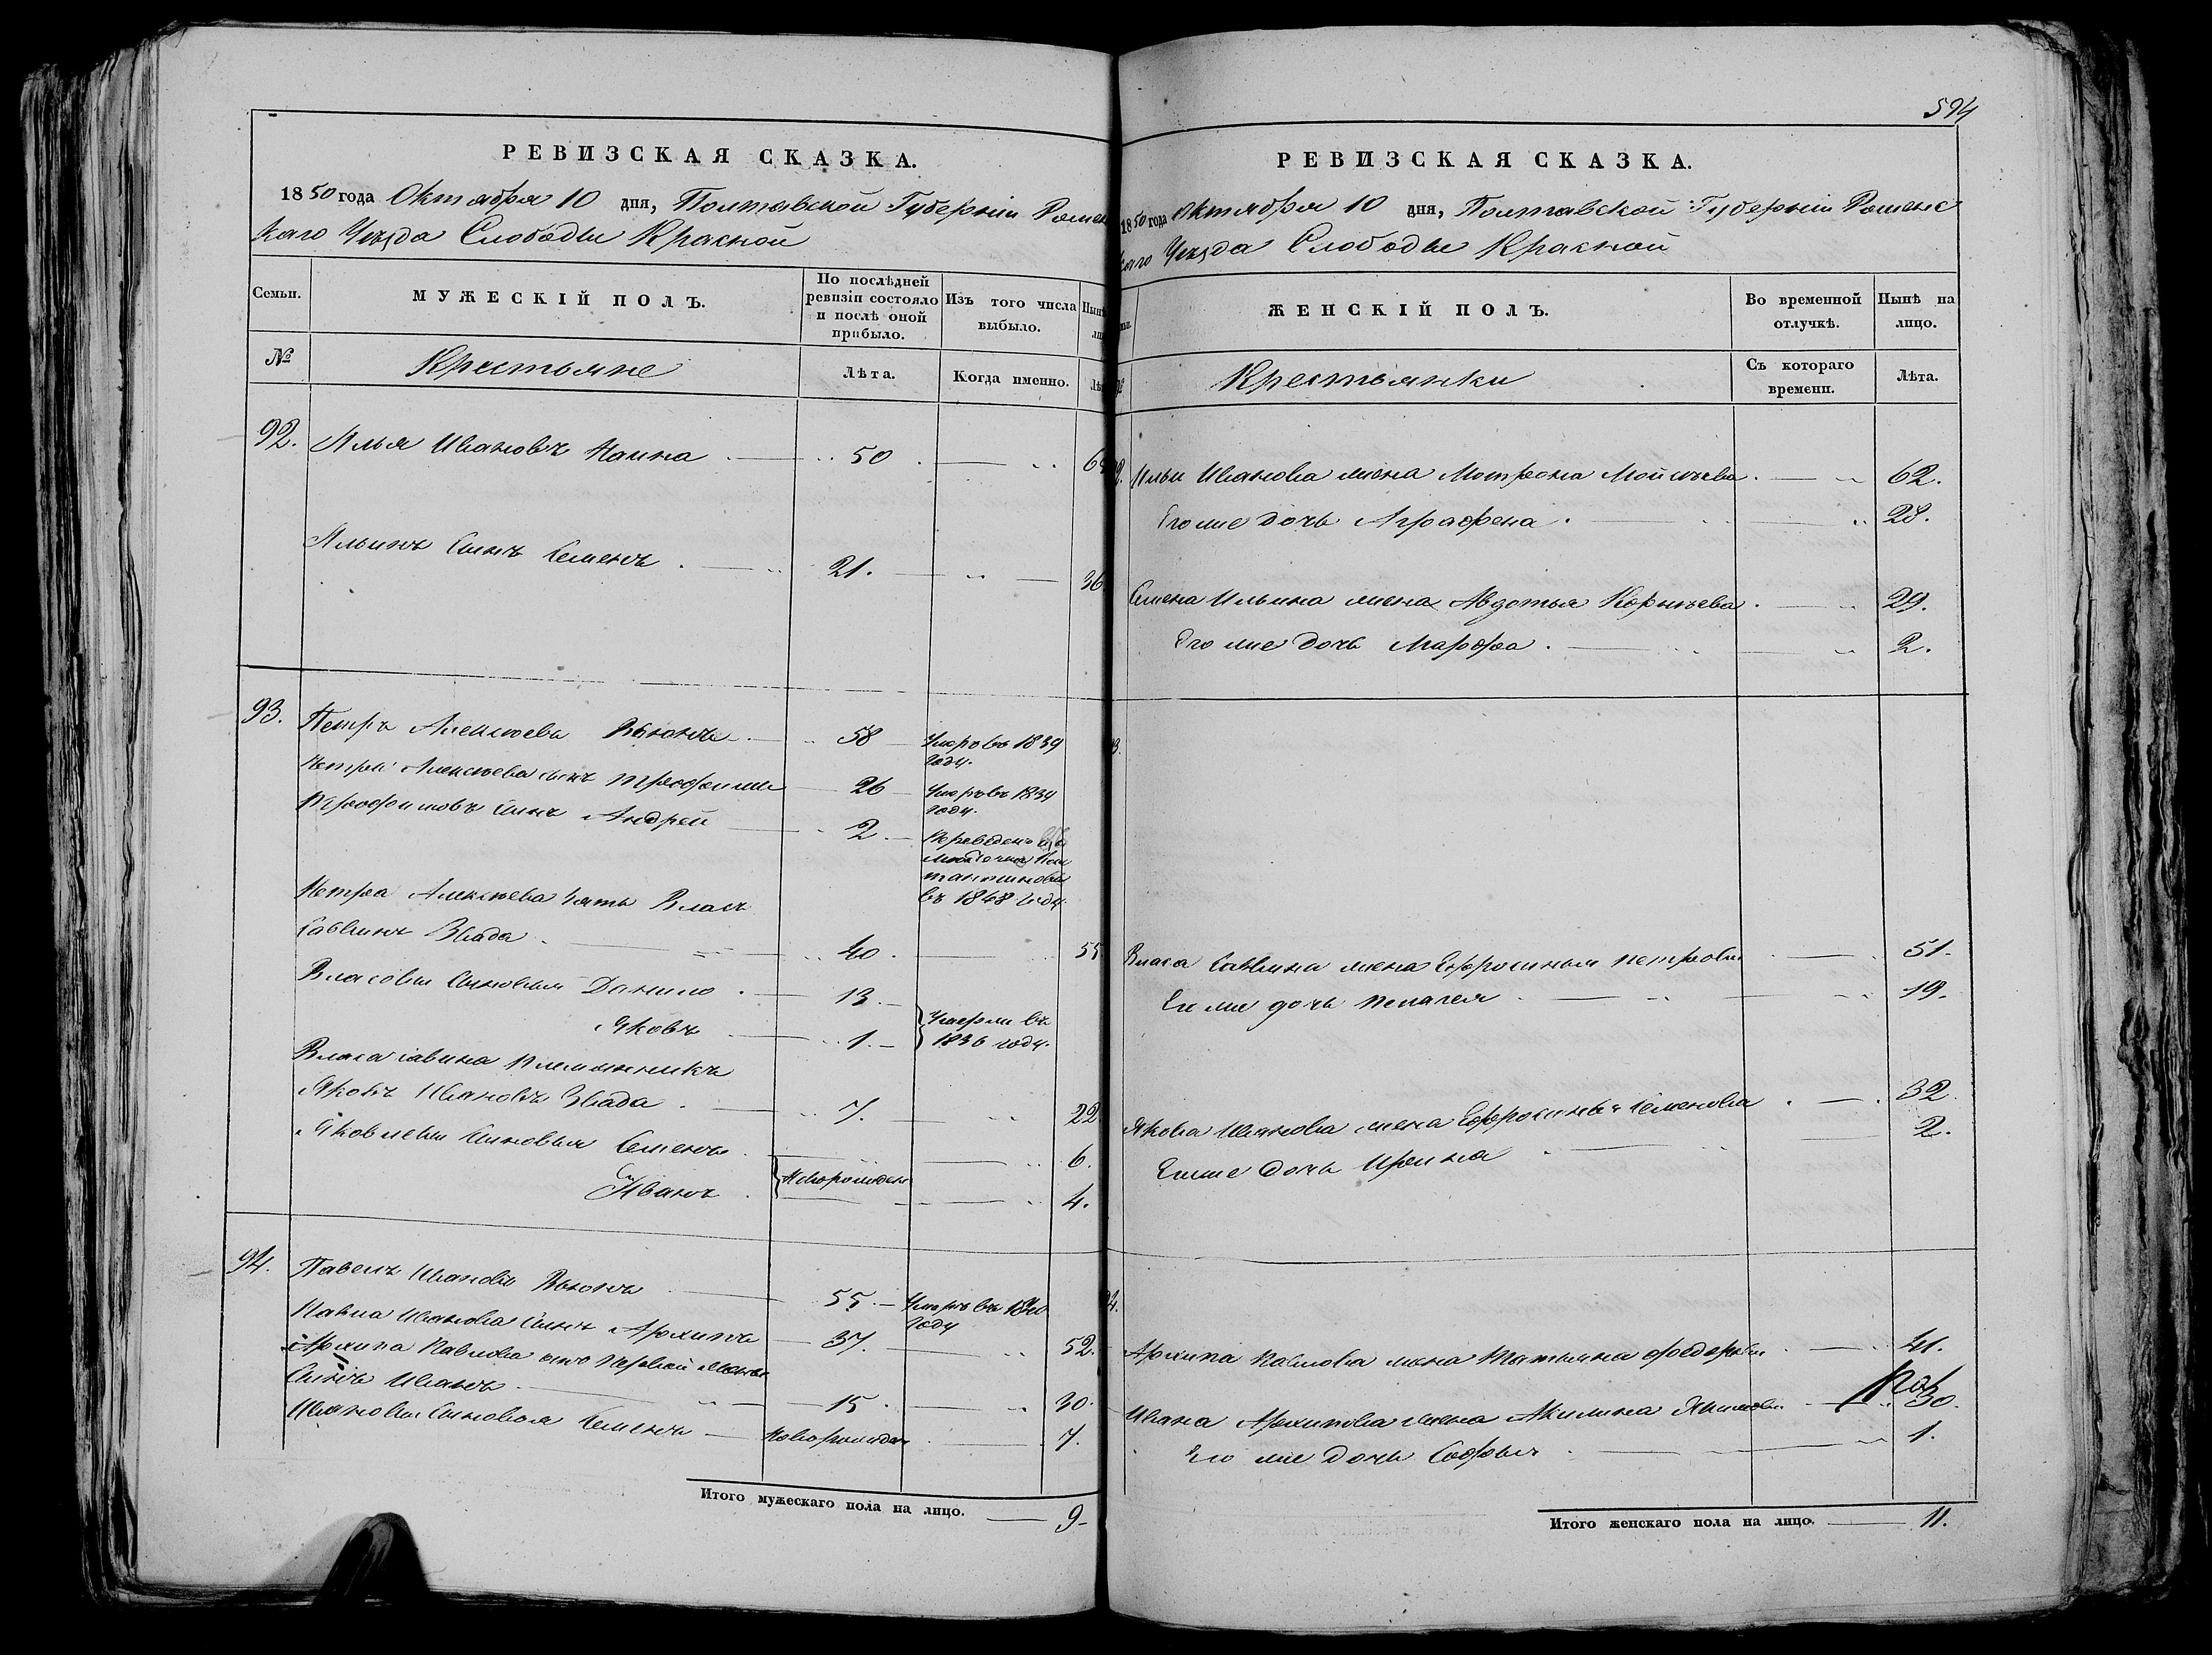 РЕВИЗСКАЯ СКАЗКА.
1850 года Октября 10 дня, Полтавской Губерніи Ромен
скаго Уѣзда Слободы Красной
Семьи.
МУЖЕСКІЙ ПОЛЪ.
По послѣдней ревизіи состояло и послѣ оной прибыло.
Изъ того числа выбыло.
№
Крестьяне
Лѣта.
Когда именно.
92. Илья Ивановъ 50
Ильинъ Сынъ Семенъ 21. 36
93. Петръ Алексѣевъ Вьюнъ 58 Умръ въ 1839 году.
Петра Алексѣева сынъ Трофимъ 26 Умръ въ 1834 году.
Трофимовъ сынъ Андрей 2. Переведенъ въ 1848 году
Петра Алексѣева зять Власъ
Саввинъ Звада 40. 55
Власовы Сыновья Данило 13.
Яковъ 1. Умерли въ 1836 году.
Власа Савина племянникъ
Яковъ Ивановъ Звада 7. 22
Яковлевы Сыновья Семенъ 6.
Иванъ Новорожден 4.
94. Павелъ Ивановъ Вьюнъ 55. Умръ въ 1840 году
Павла Иванова Сынъ Архипъ 37. 52.
Архипа Павлова отъ первой жены
Сынъ Иванъ 15. 30.
Ивановы Сыновья Семенъ Новорожден 7.
Итого мужескаго пола на лицо. 9
594
РЕВИЗСКАЯ СКАЗКА.
1850 года Октября 10 дня, Полтавской Губерніи Роменс
каго Уѣзда Слободы Красной
ЖЕНСКІЙ ПОЛЪ.
Во временной отлучкѣ.
Нынѣ на лицо.
Крестьянки
Съ котораго времени.
Лѣта.
Ильи Иванова жена Мотрона Мойсѣева 62.
Его же дочь Аграфена 28.
Семена Ильина жена Авдотья Корнѣева 29.
Его же дочь Марфа 2.
Власа Саввина жена Ефросинья Петрова 51.
Ея же дочь Пелагея 19.
Якова Иванова жена Ефросинья Семенова 32.
Его же дочь Ирина 2.
Архипа Павлова жена Татьяна Федорова 41.
Ивана Архипова жена Акилина Якимова 30.
Его же дочь Софья 1.
Итого женскаго пола на лицо. 11.